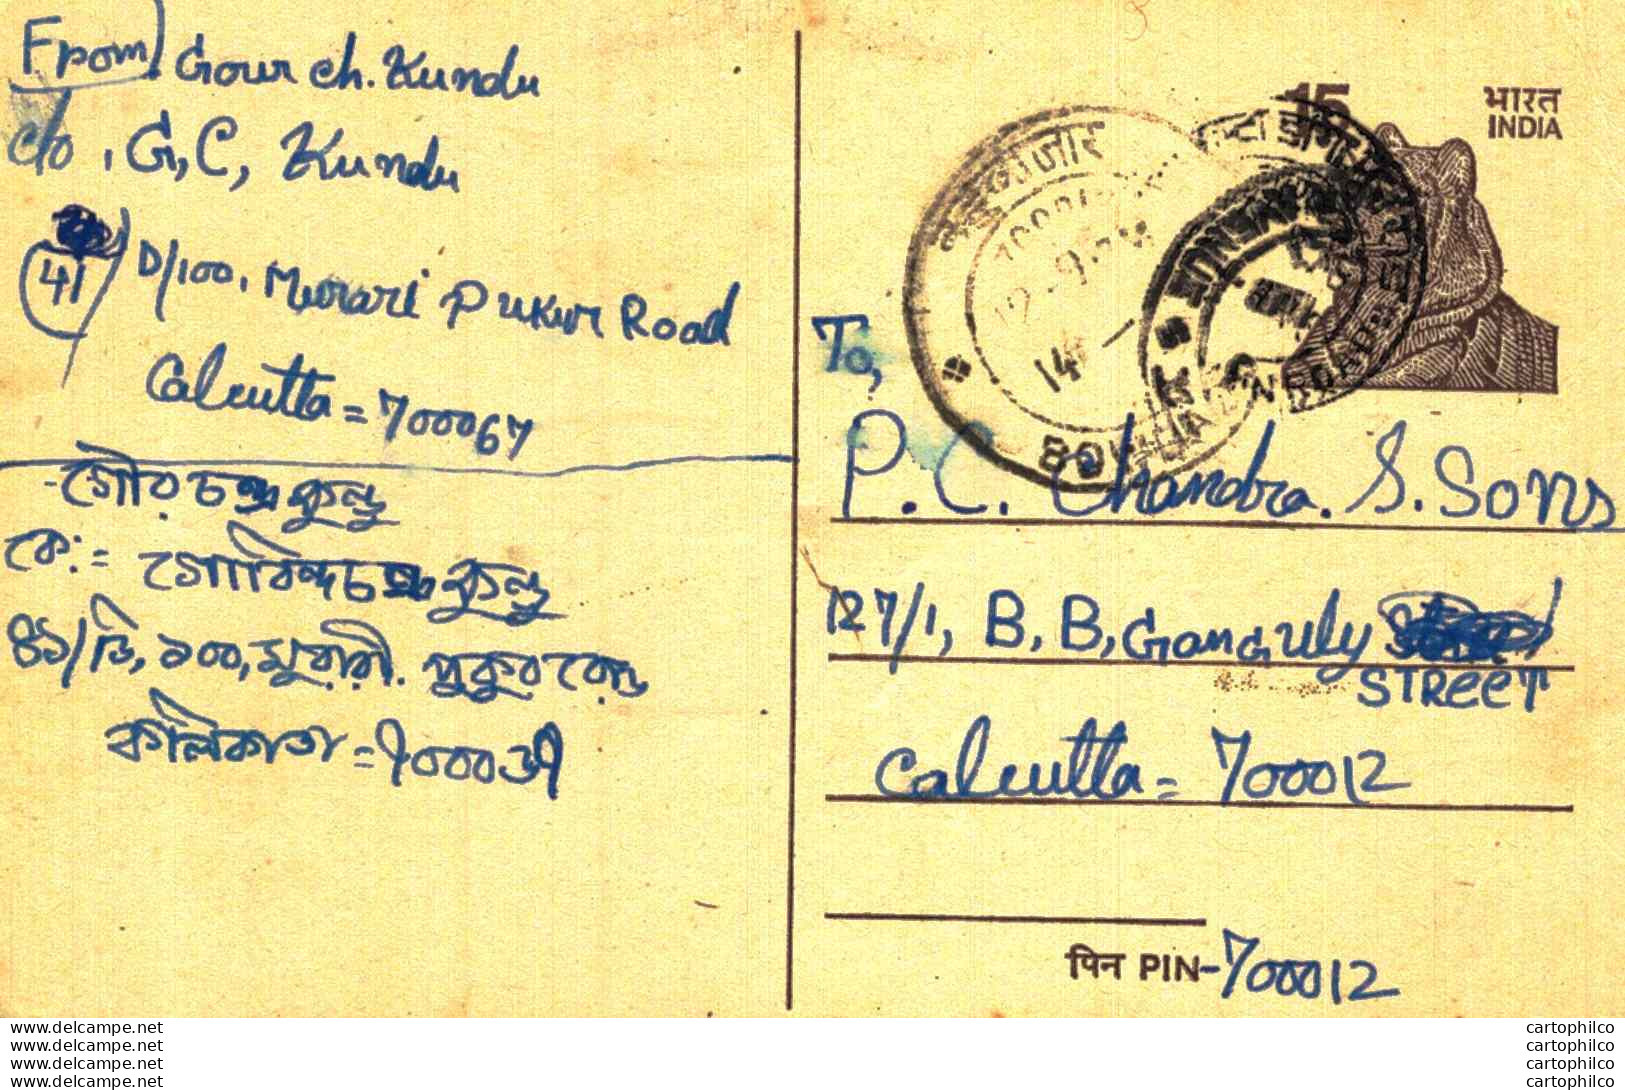 From Gour ch. Kundu
c/o, G, C, Kundu
41/D/100, Murari Pukur Road
Calcutta = 700067
গৌর চন্দ্র কুন্ডু
কে:= গোবিন্দ চন্দ্র কুন্ডু
৪১/ডি, ১০০, মুরারী পুকুর রোড
কলিকাতা = ৭০০০৬৭
15
भारत
INDIA
To,
P. C. Chandra. S. Sons
127/1, B, B, Ganguly
STREET
Calcutta = 700012
पिन PIN-700012
www.delcampe.net
www.delcampe.net
www.delcampe.net
www.delcampe.net
cartophilco
cartophilco
cartophilco
cartophilco